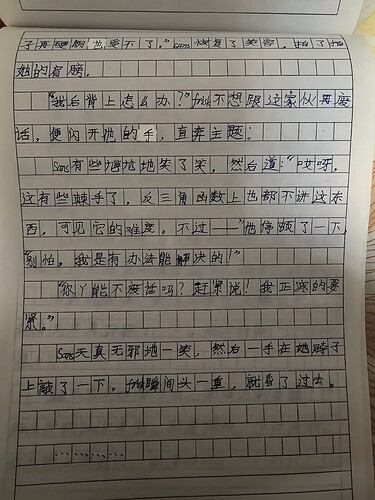 子再硬朗也受不了。"Sans 恢复了笑容，拍了拍
她的肩膀。
"我后背上怎么办？"frisk不想跟这家伙再废
话，便闪开他的手，直奔主题：
Sans有些尴尬地笑了笑，然后道："哎呀，
这有些棘手了，反三角函数上也都不讲这东
西，可见它的难度。不过——"他停顿了一下，
"别怕，我是有办法能解决的！"
"你丫能不废话吗？赶紧说！我正疼的要
紧。"
Sans天真无邪地一笑，然后一手在她脖子
上敲了一下。frisk瞬间头一重，就昏了过去。
…………